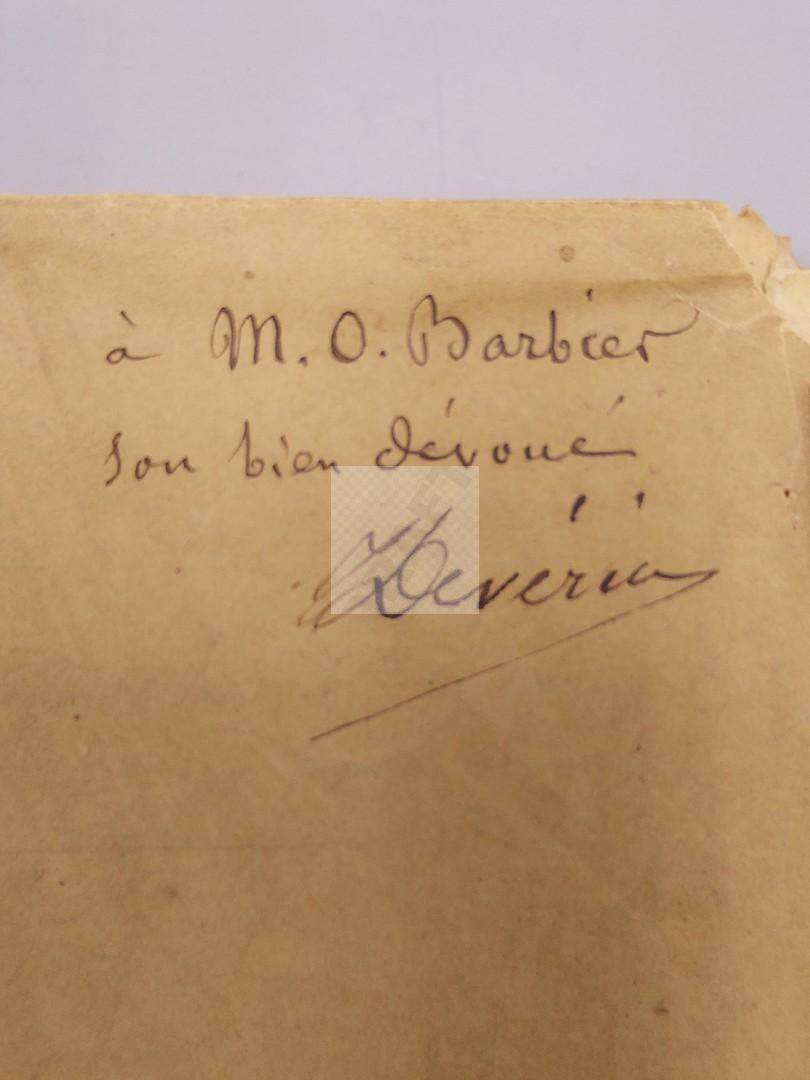 à M. O. Barbier
son bien dévoué
Devéria